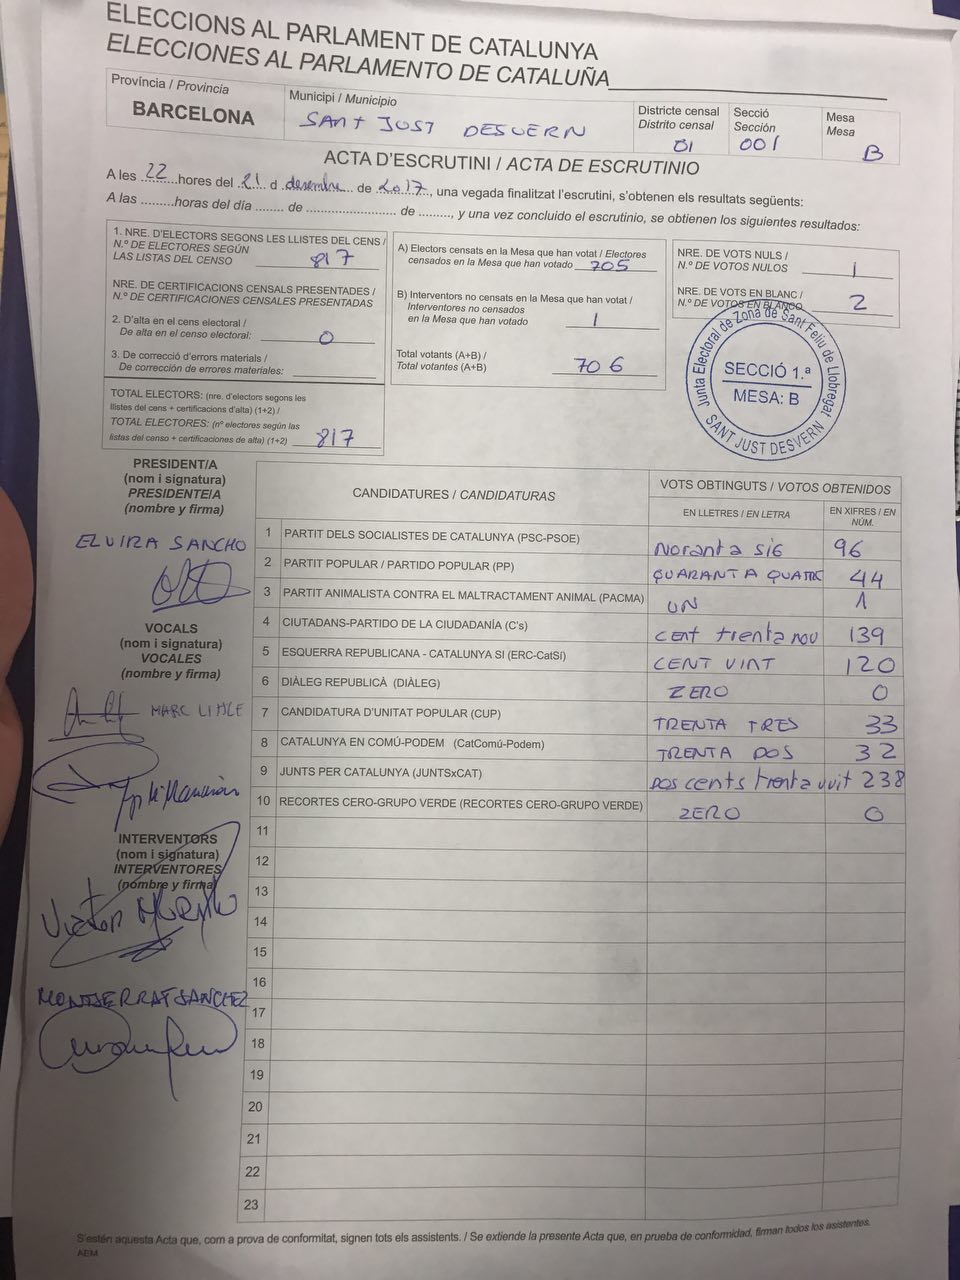 ELECCIONS AL PARLAMENT DE CATALUNYA
ELECCIONES AL PARLAMENTO DE CATALUÑA
Província / Provincia
BARCELONA
Municipi / Municipio
SANT JUST DESVERN
Districte censal
Distrito censal
01
Secció
Sección
001
Mesa
Mesa
B
ACTA D'ESCRUTINI / ACTA DE ESCRUTINIO
A les 22 hores del 21 d desembre de 2017, una vegada finalitzat l'escrutini, s'obtenen els resultats següents:
A las .........horas del día ........ de ........................... de ........., y una vez concluido el escrutinio, se obtienen los siguientes resultados:
1. NRE. D'ELECTORS SEGONS LES LLISTES DEL CENS /
N.º DE ELECTORES SEGÚN
LAS LISTAS DEL CENSO 817
NRE. DE CERTIFICACIONS CENSALS PRESENTADES /
N.º DE CERTIFICACIONES CENSALES PRESENTADAS
2. D'alta en el cens electoral /
De alta en el censo electoral: 0
3. De correcció d'errors materials /
De corrección de errores materiales:
TOTAL ELECTORS: (nre. d'electors segons les
llistes del cens + certificacions d'alta) (1+2) /
TOTAL ELECTORES: (nº electores según las
listas del censo + certificaciones de alta) (1+2) 817
A) Electors censats en la Mesa que han votat / Electores
censados en la Mesa que han votado 705
B) Interventors no censats en la Mesa que han votat /
Interventores no censados
en la Mesa que han votado 1
Total votants (A+B) /
Total votantes (A+B) 706
NRE. DE VOTS NULS /
N.º DE VOTOS NULOS 1
NRE. DE VOTS EN BLANC /
N.º DE VOTOS EN BLANCO 2
Junta Electoral de Zona de Sant Feliu de Llobregat
SECCIÓ 1.ª
MESA: B
SANT JUST DESVERN
PRESIDENT/A
(nom i signatura)
PRESIDENTE/A
(nombre y firma)
ELVIRA SANCHO
VOCALS
(nom i signatura)
VOCALES
(nombre y firma)
MARC
INTERVENTORS
(nom i signatura)
INTERVENTORES
(nombre y firma)
MONTSERRAT SANCHEZ
CANDIDATURES / CANDIDATURAS
VOTS OBTINGUTS / VOTOS OBTENIDOS
EN LLETRES / EN LETRA
EN XIFRES / EN NÚM.
1 PARTIT DELS SOCIALISTES DE CATALUNYA (PSC-PSOE) Noranta sis 96
2 PARTIT POPULAR / PARTIDO POPULAR (PP) QUARANTA QUATRE 44
3 PARTIT ANIMALISTA CONTRA EL MALTRACTAMENT ANIMAL (PACMA) UN 1
4 CIUTADANS-PARTIDO DE LA CIUDADANÍA (C's) cent trenta nou 139
5 ESQUERRA REPUBLICANA - CATALUNYA SI (ERC-CatSí) CENT VINT 120
6 DIÀLEG REPUBLICÀ (DIÀLEG) ZERO 0
7 CANDIDATURA D'UNITAT POPULAR (CUP) TRENTA TRES 33
8 CATALUNYA EN COMÚ-PODEM (CatComú-Podem) TRENTA DOS 32
9 JUNTS PER CATALUNYA (JUNTSxCAT) DOS cents trenta vuit 238
10 RECORTES CERO-GRUPO VERDE (RECORTES CERO-GRUPO VERDE) ZERO 0
11
12
13
14
15
16
17
18
19
20
21
22
23
S'estén aquesta Acta que, com a prova de conformitat, signen tots els assistents. / Se extiende la presente Acta que, en prueba de conformidad, firman todos los asistentes.
AEM